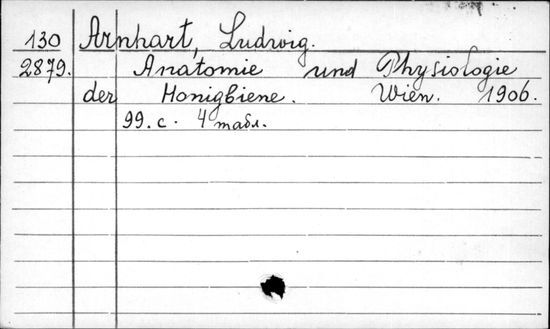 130 Arnhart, Ludwig.
2879. Anatomie und Physiologie
der Honigbiene. Wien. 1906.
99. с. 4 табл.